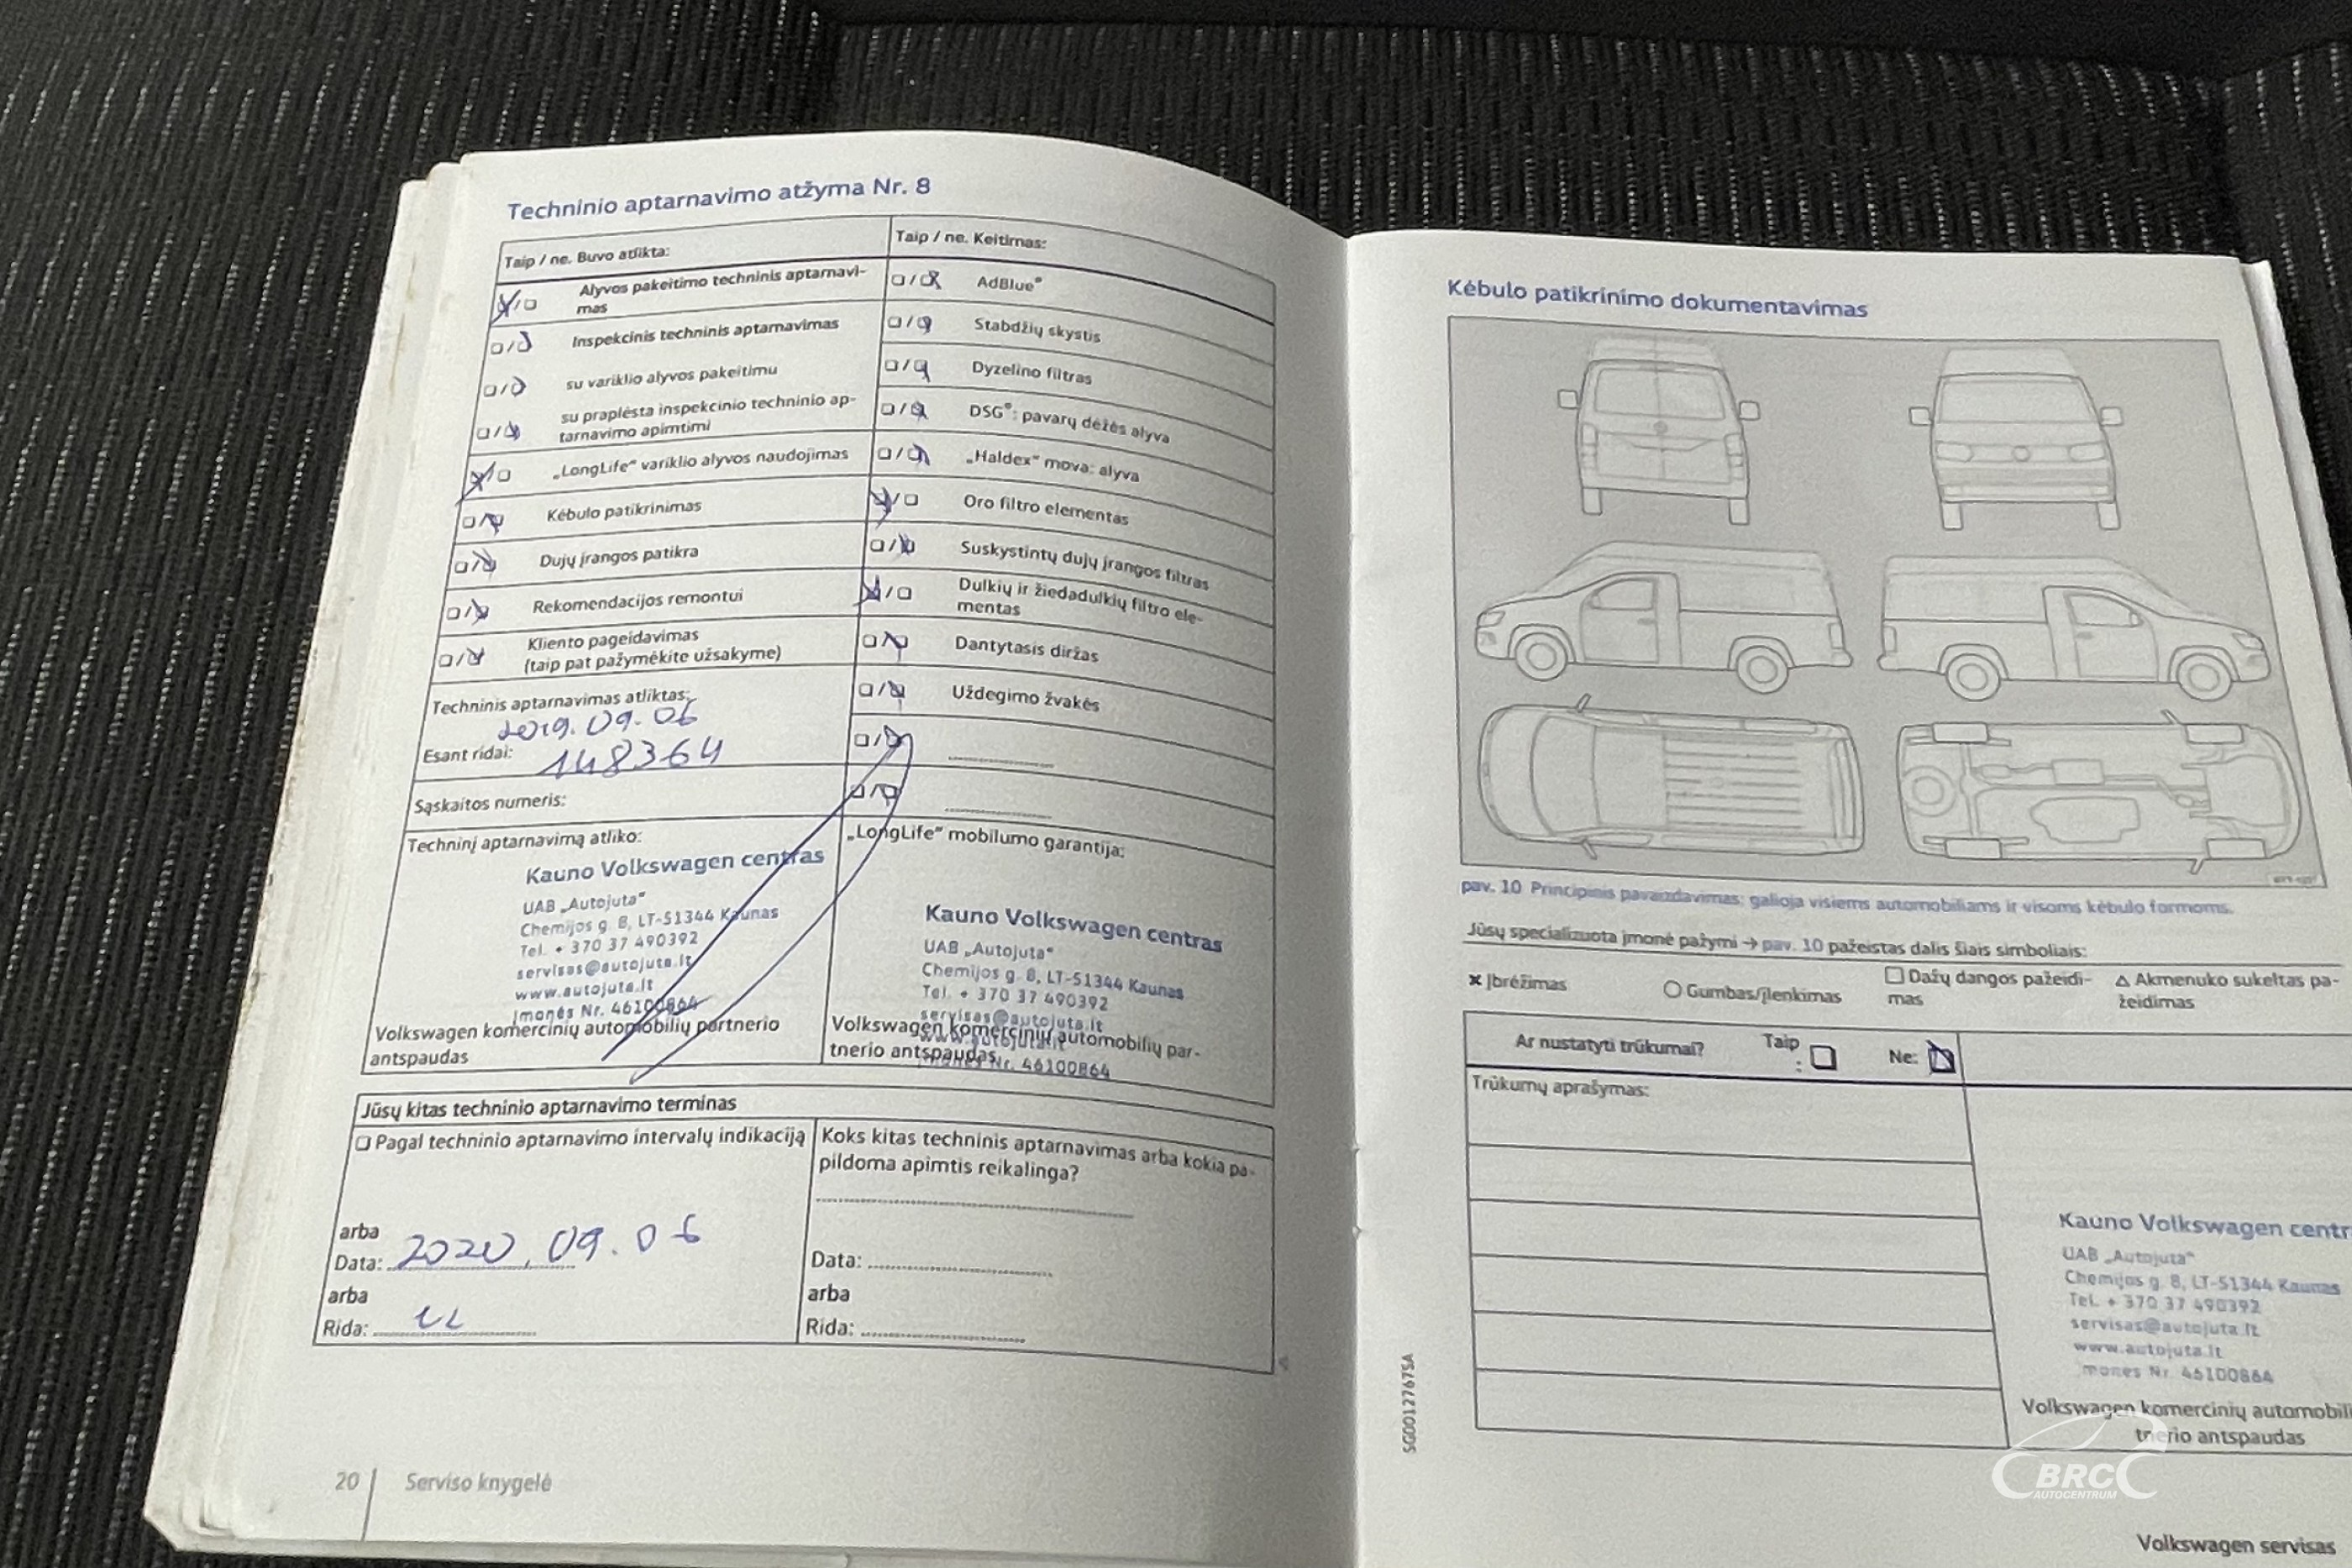 Techninio aptarnavimo atžyma Nr. 8
Taip / ne. Buvo atlikta:
Alyvos pakeitimo techninis aptarnavi-
mas
Inspekcinis techninis aptarnavimas
su variklio alyvos pakeitimu
su praplėsta inspekcinio techninio ap-
tarnavimo apimtimi
„LongLife“ variklio alyvos naudojimas
Kėbulo patikrinimas
Dujų įrangos patikra
Rekomendacijos remontui
Kliento pageidavimas
(taip pat pažymėkite užsakyme)
Techninis aptarnavimas atliktas:
2019.09.06
Esant ridai: 148364
Sąskaitos numeris:
Techninį aptarnavimą atliko:
Kauno Volkswagen centras
UAB „Autojuta“
Chemijos g. 8, LT-51344 Kaunas
Tel. + 370 37 490392
servisas@autojuta.lt
www.autojuta.lt
Įmonės Nr. 46100864
Volkswagen komercinių automobilių partnerio
antspaudas
Taip / ne. Keitimas:
AdBlue®
Stabdžių skystis
Dyzelino filtras
DSG®: pavarų dėžės alyva
„Haldex“ mova: alyva
Oro filtro elementas
Suskystintų dujų įrangos filtras
Dulkių ir žiedadulkių filtro ele-
mentas
Dantytasis diržas
Uždegimo žvakės
„LongLife“ mobilumo garantija:
Kauno Volkswagen centras
UAB „Autojuta“
Chemijos g. 8, LT-51344 Kaunas
Tel. + 370 37 490392
servisas@autojuta.lt
www.autojuta.lt
Įmonės Nr. 46100864
Volkswagen komercinių automobilių par-
tnerio antspaudas
Jūsų kitas techninio aptarnavimo terminas
Pagal techninio aptarnavimo intervalų indikaciją
arba
Data: 2020.09.06
arba
Rida:
Koks kitas techninis aptarnavimas arba kokia pa-
pildoma apimtis reikalinga?
Data:
arba
Rida:
20 | Serviso knygelė
Kėbulo patikrinimo dokumentavimas
pav. 10 Principinis pavaizdavimas: galioja visiems automobiliams ir visoms kėbulo formoms.
Jūsų specializuota įmonė pažymi → pav. 10 pažeistas dalis šiais simboliais:
× Įbrėžimas
○ Gumbas/įlenkimas
□ Dažų dangos pažeidi-
mas
△ Akmenuko sukeltas pa-
žeidimas
Ar nustatyti trūkumai? Taip
: Ne:
Trūkumų aprašymas:
Kauno Volkswagen centr
UAB „Autojuta“
Chemijos g. 8, LT-51344 Kaunas
Tel. + 370 37 490392
servisas@autojuta.lt
www.autojuta.lt
Įmonės Nr. 46100864
Volkswagen komercinių automobili
tnerio antspaudas
SG0012767SA
Volkswagen servisas
BRC
AUTOCENTRUM